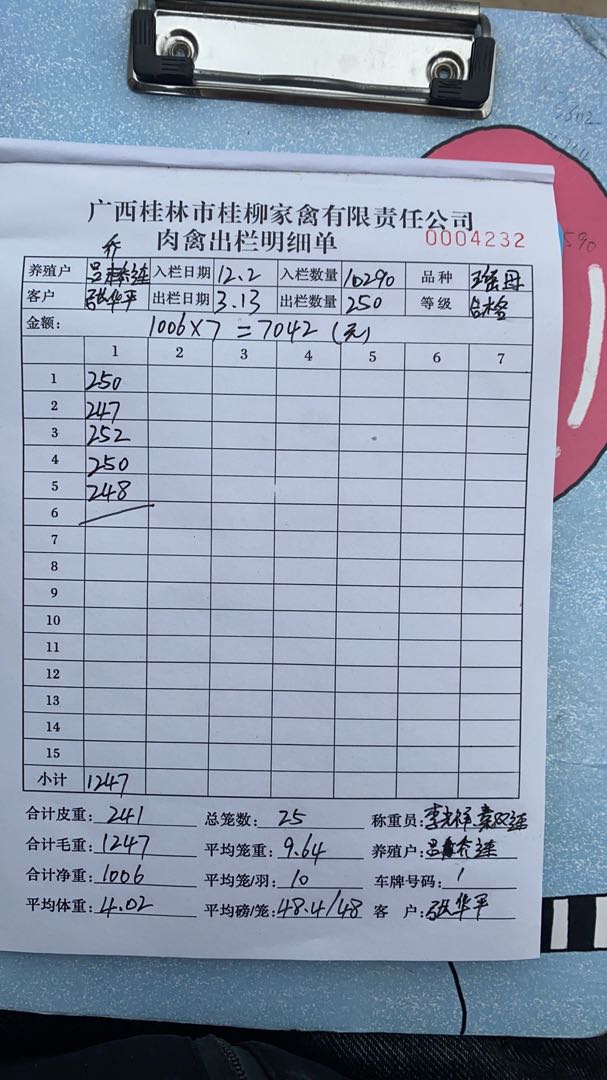 广西桂林市桂柳家禽有限责任公司
肉禽出栏明细单 0004232
乔
养殖户 吕 连 入栏日期 12.2 入栏数量 10290 品种
客户 张华平 出栏日期 3.13 出栏数量 250 等级 合格
金额: 1006×7=7042(元)
1 2 3 4 5 6 7
1 250
2 247
3 252
4 250
5 248
6
7
8
9
10
11
12
13
14
15
小计 1247
合计皮重: 241 总笼数: 25 称重员: 李 连
合计毛重: 1247 平均笼重: 9.64 养殖户: 吕 连
合计净重: 1006 平均笼/羽: 10 车牌号码: 1
平均体重: 4.02 平均磅/笼: 48.4/48 客户: 张华平